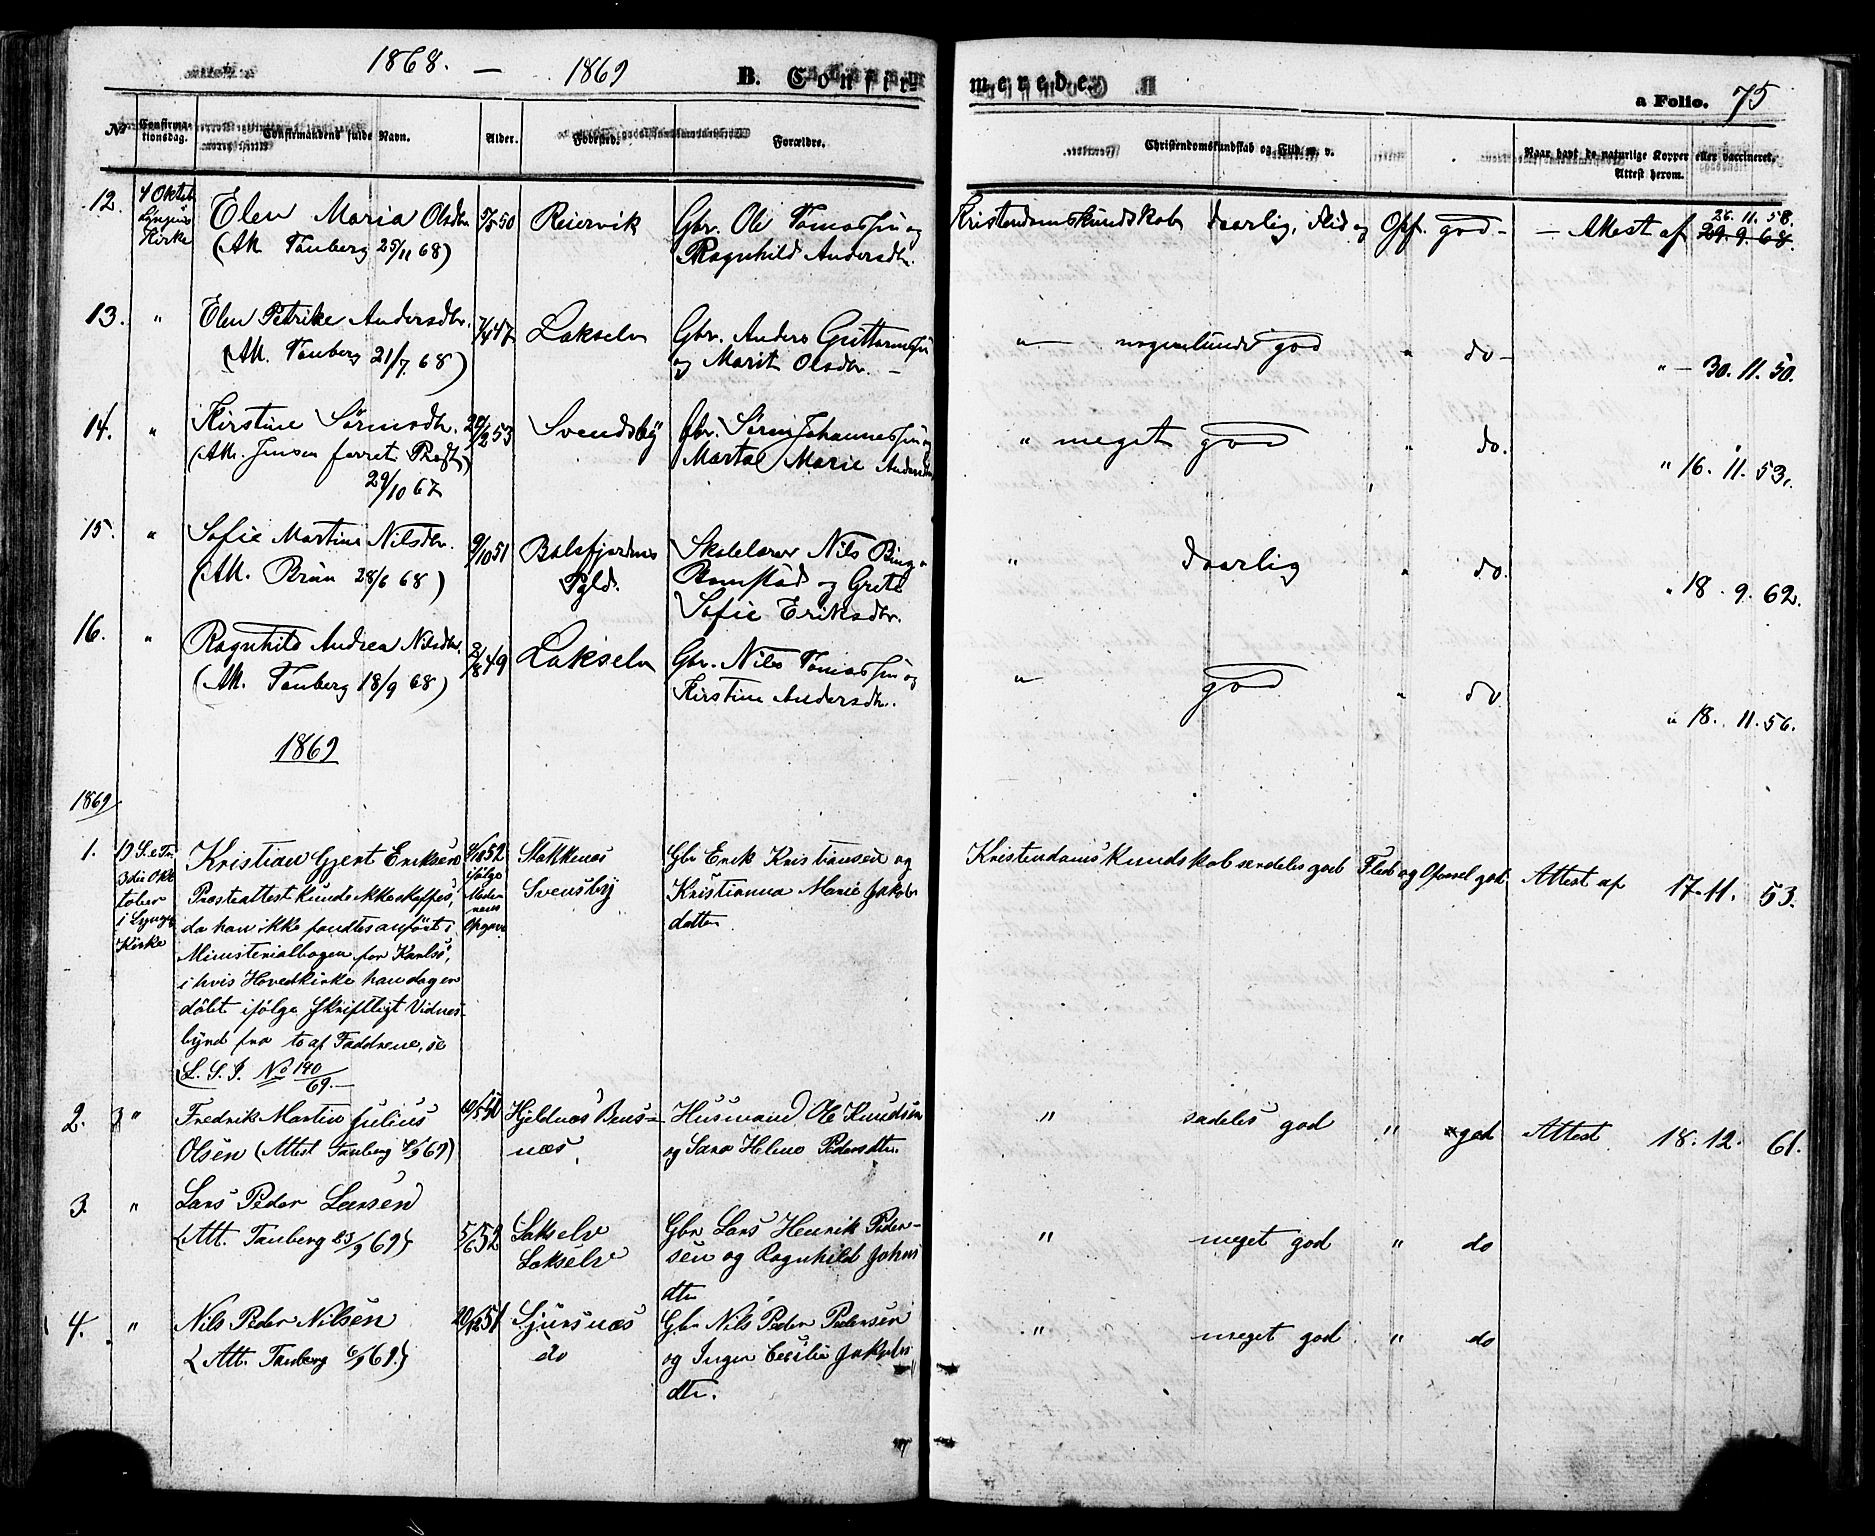 1868. — 1869 B. Confirmerede. a Folio. 75
No Confirmationsdag. Confirmandens fulde Navn. Alder. Fødested. Forældre. Christendomskundskab og Flid m. v. Naar havt de naturlige Kopper eller vaccineret. Attest herom.
12. 4 Oktob Lyngens Kirke
Elen Maria Olsdtr
(Att. Tauberg 25/11 68)
50 Reiervik
Gbr. Ole Tomassen og
Ragnhild Andersdtr.
Kristendomskundskab daarlig, Flid og Opf. god — Attest af 29. 9. 68.
26. 11. 58.
13. "
Elen Petrike Andersdtr.
(Att. Tauberg 21/7 68)
47 Lakselv
Gbr. Anders Guttormsen
og Marit Olsdtr. —
" — nogenlunde god " do — " — 30. 11. 50.
14. "
Kirstine Sørensdtr.
(Att. Jensen forret. Præst
29/10 67
53 Svendsby
Gbr. Søren Johannessen og
Martae Marie Andersdtr
" meget god " do. " 16. 11. 53.
15. "
Sofie Martine Nilsdtr.
(Att. Brun 28/6 68)
9/10 51 Balsfjordens
Pgld.
Skolelærer Nils Bing
Bomstad og Grete
Sofie Eriksdtr.
" daarlig " do. " 18. 9. 62.
16. "
Ragnhild Andrea Nilsdtr.
(Att. Tauberg 18/9 68)
2/8 49 Lakselv
Gbr. Nils Tomassen og
Kirstine Andersdtr.
" god " do " 18. 11. 56.
1869
1869
1. 19 S. e Tr. 3die Oktober i Lyngens Kirke
Kristian Gjert Eriksen
Præsteattest kunde ikke skaffes,
da han ikke fandtes anført i
Ministerialbogen for Karlsø,
i hvis Hovedkirke han dog er
døbt ifølge Skriftligt Vidnes-
byrd fra to af Faddrene, se
L. S. J. No 190/69. —
52 ifølge Moderens Opgave
Stakknes
Svensby
Gbr Erik Kristiansen og
Kristianna Marie Jakobs
datter.
Kristendomskundskab særdeles god Flid og Opførsel god. Attest af 17. 11. 53.
2. "
Fredrik Martin Julius
Olsen (Attest Tauberg 6/9 69)
50 Hjeldnæs Bens-
næs.
Husmand Ole Knudsen
og Sara Helene Pedersdtr.
" sædeles god " god Attest 18. 12. 61.
3. "
Lars Peder Larsen
(Att. Tauberg 23/9 69)
5/6 52 Lakselv
Lakselv
Gbr Lars Henrik Peder-
sen og Ragnhild Johns
dtr
" meget god " do
4. "
Nils Peder Nilsen
(Att. Tauberg 6/9 69.)
20/12 51 Sjursnæs
do
Gbr Nils Peder Pedersen
og Inger Cecilia Jakobs
dtr.
" meget god " do